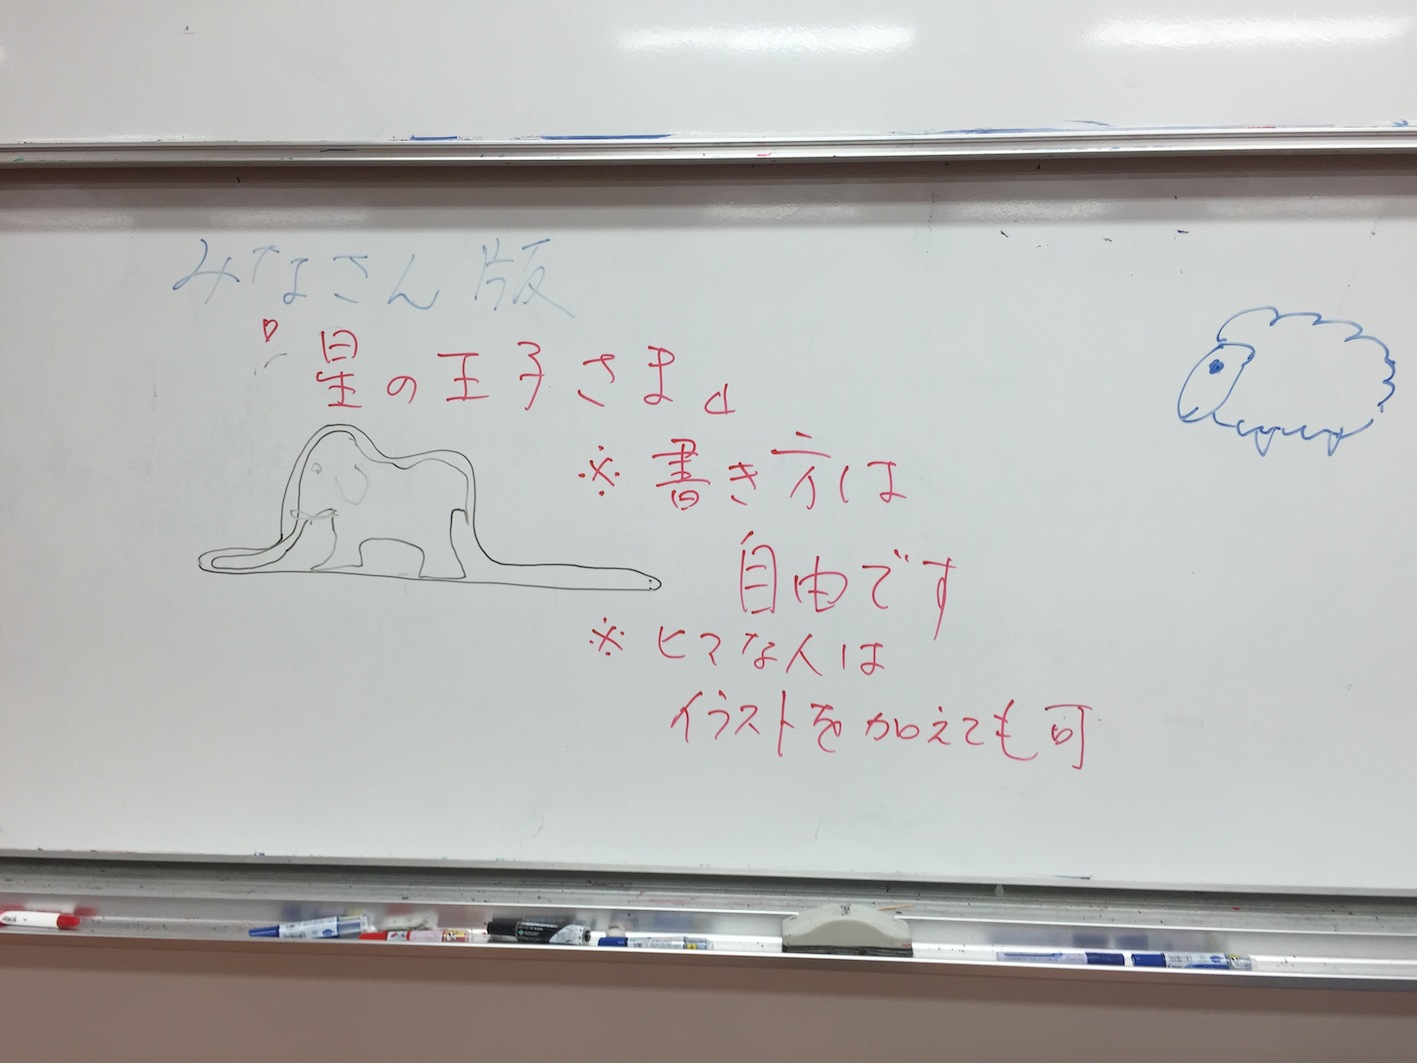 みなさん版
『星の王子さま』
※書き方は
自由です
※ヒマな人は
イラストを加えても可